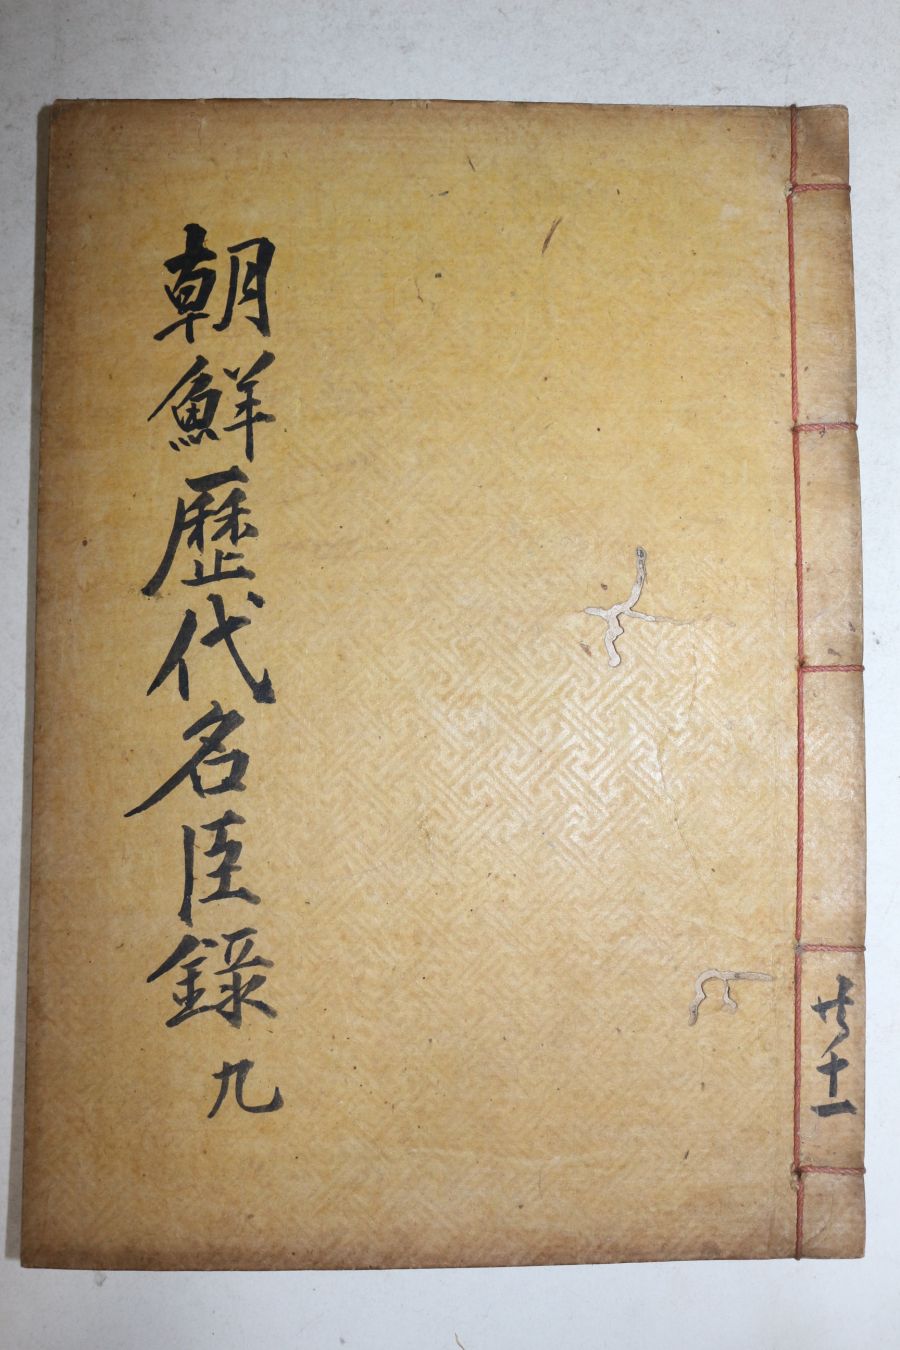 共十一
朝鮮歷代名臣錄 九